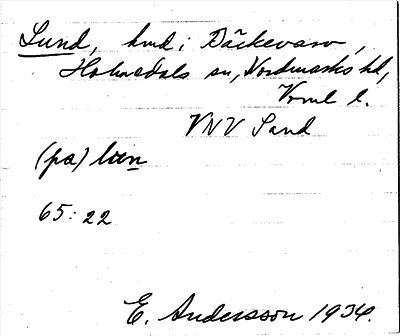 Lund, hmd i Bäckevarv,
Holmedals sn, Nordmarks hd,
Vrml l.
VNV Sand
(pa) lun
65:22
E. Andersson 1934.